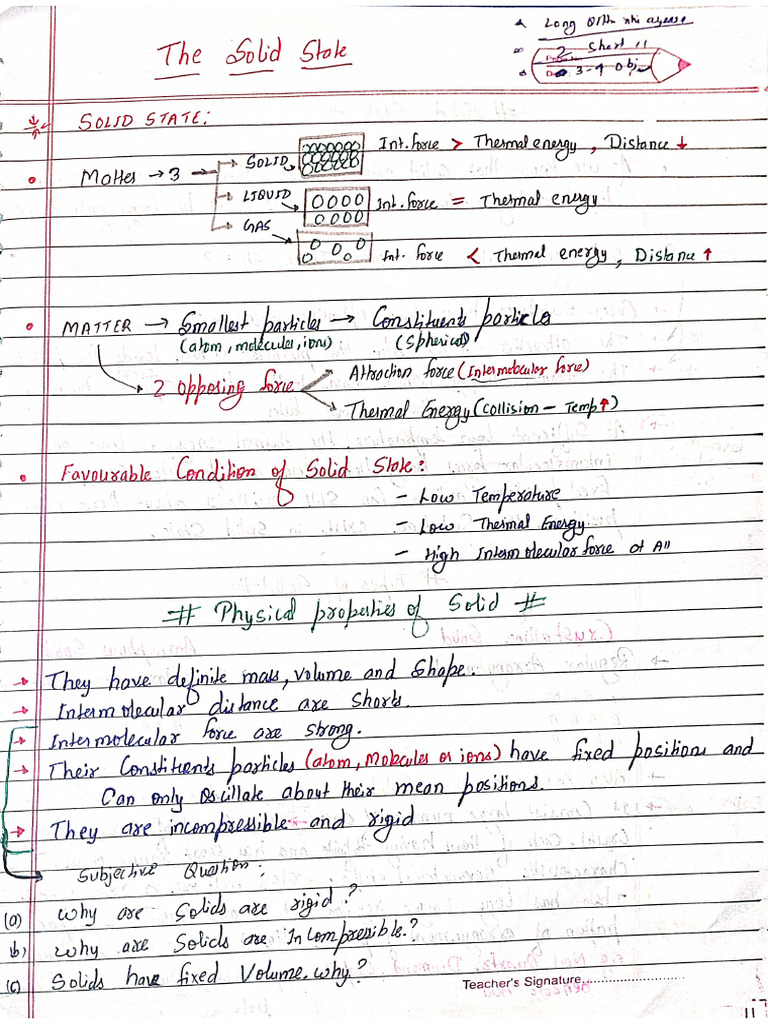 The Solid State
Long
2 Short 11
3-4 Obj
SOLID STATE:
Matter → 3 → SOLID Int. force > Thermal energy, Distance ↓
→ LIQUID Int. force = Thermal energy
→ GAS Int. force < Thermal energy, Distance ↑
MATTER → Smallest particles → Constituents particles
(atom, molecules, ions) (Spherical)
2 Opposing force Attraction force (Intermolecular force)
Thermal Energy (Collision - Temp ↑)
Favourable Condition of Solid State:
- Low Temperature
- Low Thermal Energy
- High Intermolecular force of A"
# Physical properties of Solid #
→ They have definite mass, volume and Shape.
→ Intermolecular distance are Shorts.
→ Intermolecular force are strong.
→ Their Constituents particles (atom, Molecules or ions) have fixed positions and
Can only Oscillate about their mean positions.
→ They are incompressible and rigid
Subjective Question:
(a) Why are Solids are rigid?
b) Why are Solids are Incompresible?
(c) Solids have fixed Volume. why?
Teacher's Signature